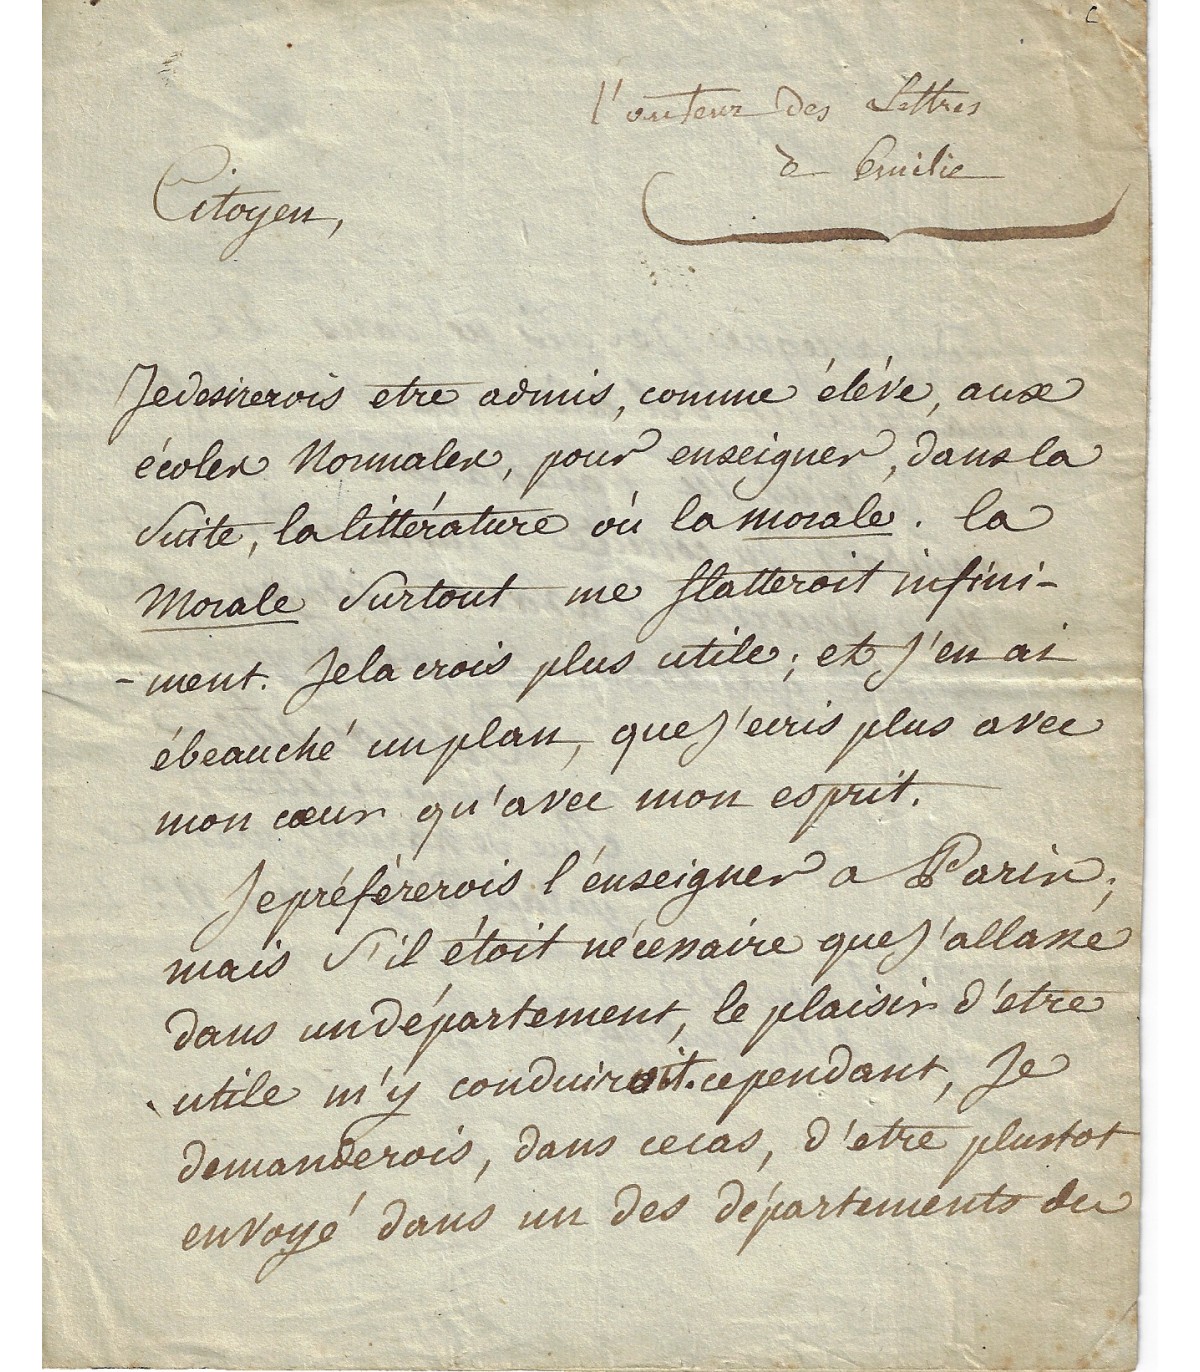 c
l'auteur des Lettres
à Emilie
Citoyen,
Je desirerois etre admis, comme éléve, aux
écoles Normales, pour enseigner, dans la
Suite, la littérature ou la morale. la
Morale Surtout me flatteroit infini-
-ment. Je la crois plus utile; et J'en ai
ébeauché un plan, que J'ecris plus avec
mon cœur qu'avec mon esprit.
Je préférerois l'énseigner a Paris;
mais S'il étoit nécessaire que J'allasse
dans un département, le plaisir d'être
utile m'y conduiroit. cependant, Je
demanderois, dans ce cas, d'etre plustot
envoyé dans un des départements du